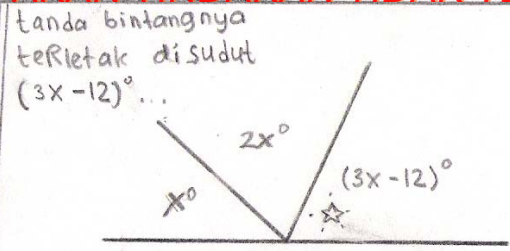 tanda bintangnya
teRletak disudut
(3x-12)°...
2x°
x°
(3x-12)°